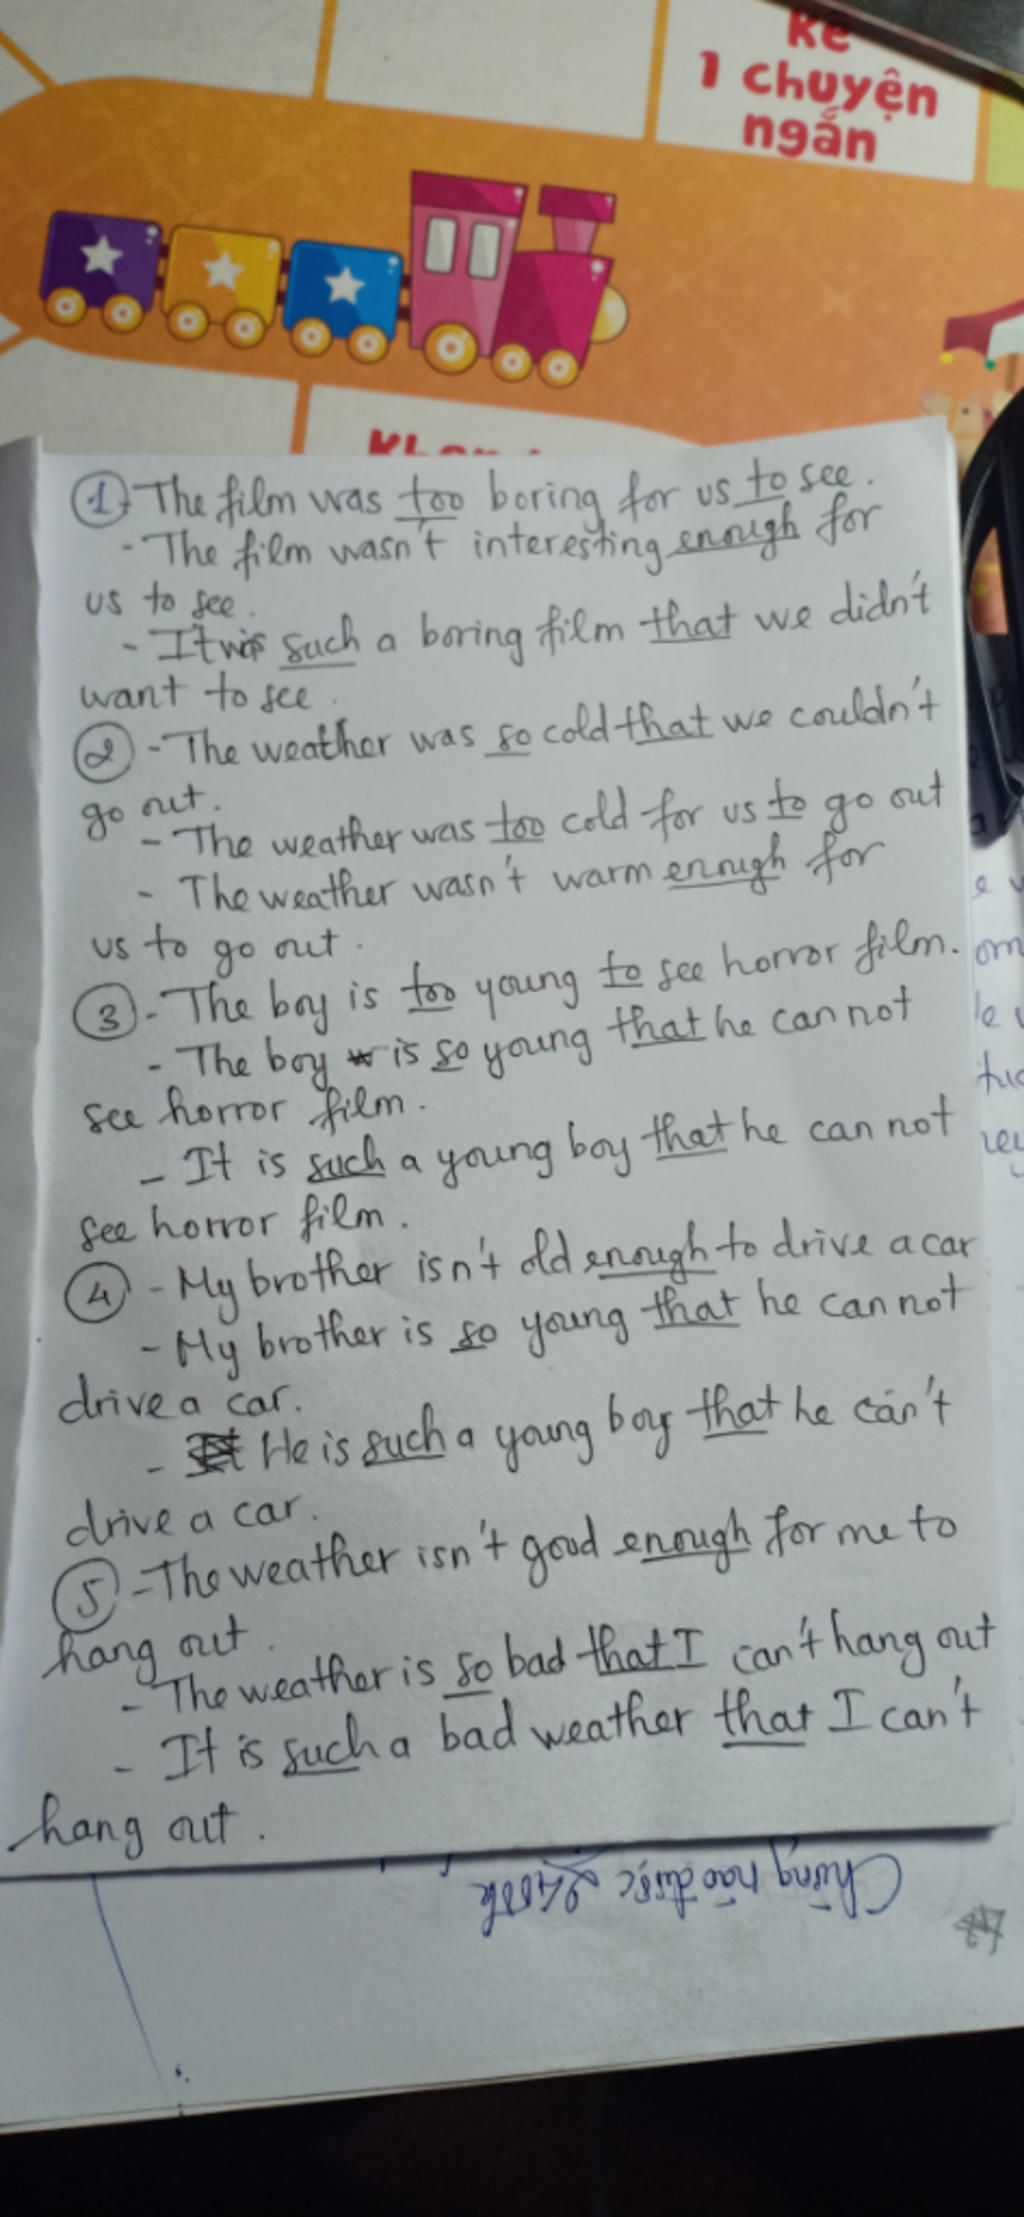 kể
1 chuyện
ngắn
① - The film was too boring for us to see.
- The film wasn't interesting enough for
us to see.
- It was such a boring film that we didn't
want to see.
② - The weather was so cold that we couldn't
go out.
- The weather was too cold for us to go out
- The weather wasn't warm enough for
us to go out.
③ - The boy is too young to see horror film.
- The boy is so young that he can not
see horror film.
- It is such a young boy that he can not
see horror film.
④ - My brother isn't old enough to drive a car
- My brother is so young that he can not
drive a car.
- He is such a young boy that he can't
drive a car.
⑤ - The weather isn't good enough for me to
hang out.
- The weather is so bad that I can't hang out
- It is such a bad weather that I can't
hang out.